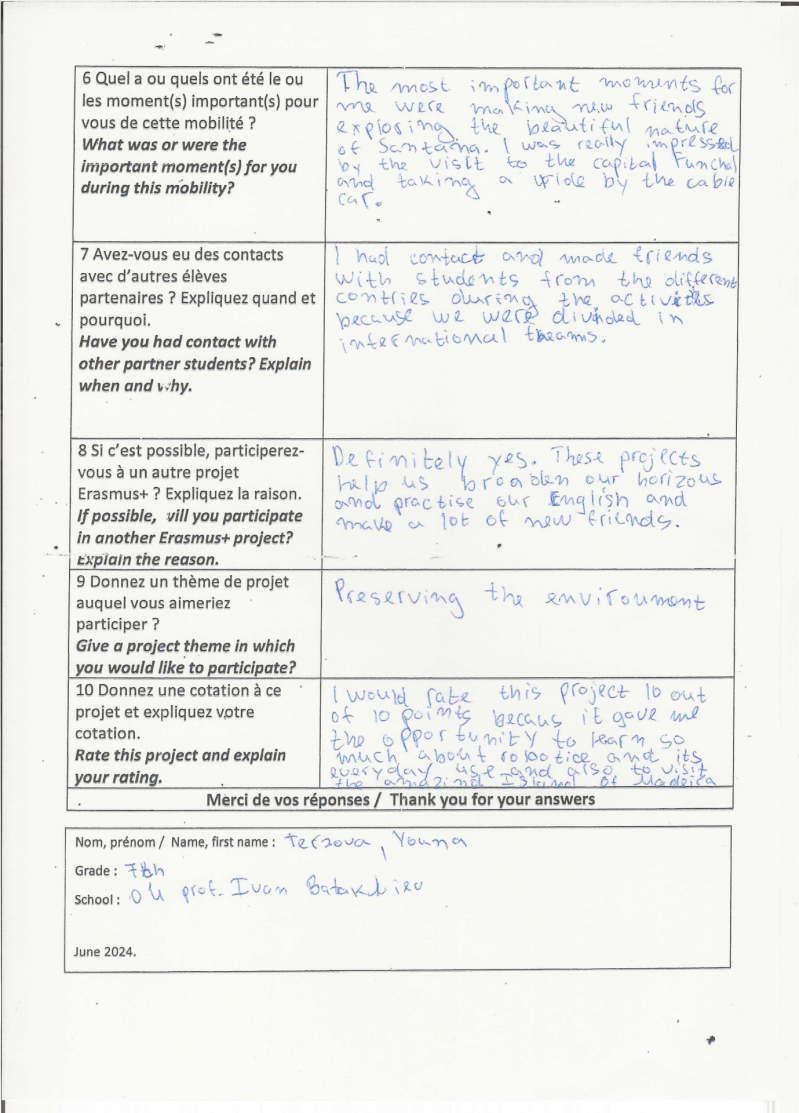 6 Quel a ou quels ont été le ou
les moment(s) important(s) pour
vous de cette mobilité ?
What was or were the
important moment(s) for you
during this mobility?
The most important moments for
me were making new friends
exploring the beautiful nature
of Santana. I was really impressed
by the visit to the capital Funchal
and taking a ride by the cable
car.
7 Avez-vous eu des contacts
avec d'autres élèves
partenaires ? Expliquez quand et
pourquoi.
Have you had contact with
other partner students? Explain
when and why.
I had contact and made friends
with students from the different
contries during the activities
because we were divided in
international teams.
8 Si c'est possible, participerez-
vous à un autre projet
Erasmus+ ? Expliquez la raison.
If possible, will you participate
in another Erasmus+ project?
Explain the reason.
Definitely yes. These projects
help us broaden our horizons
and practise our English and
make a lot of new friends.
9 Donnez un thème de projet
auquel vous aimeriez
participer ?
Give a project theme in which
you would like to participate?
Preserving the environment
10 Donnez une cotation à ce
projet et expliquez votre
cotation.
Rate this project and explain
your rating.
I would rate this project 10 out
of 10 points becaus it gave me
the opportunity to learn so
much about robotice and its
everyday use and also to visit
the amazind Island of Madeira
Merci de vos réponses / Thank you for your answers
Nom, prénom / Name, first name : Terzova, Yoana
Grade : 7th
School : OU prof. Ivan Batakliev
June 2024.